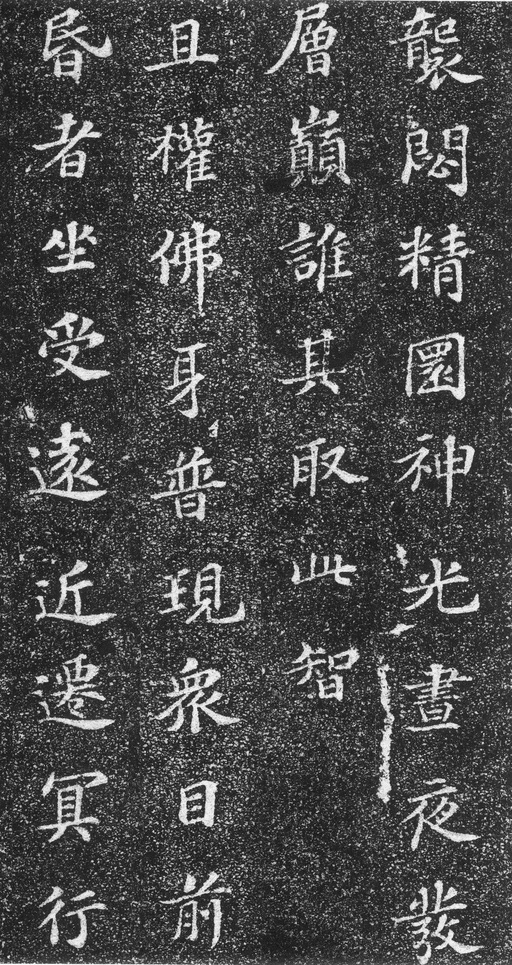 襲悶精圜神光晝夜發
層巔誰其取此智
且權佛身普現衆目前
昏者坐受遠近遷冥行